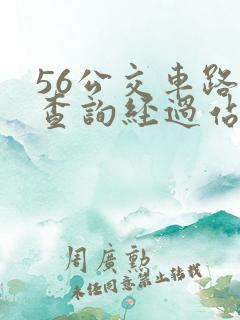 56公交車路
查詢經過佔
周廣勲
未经同意禁止转载